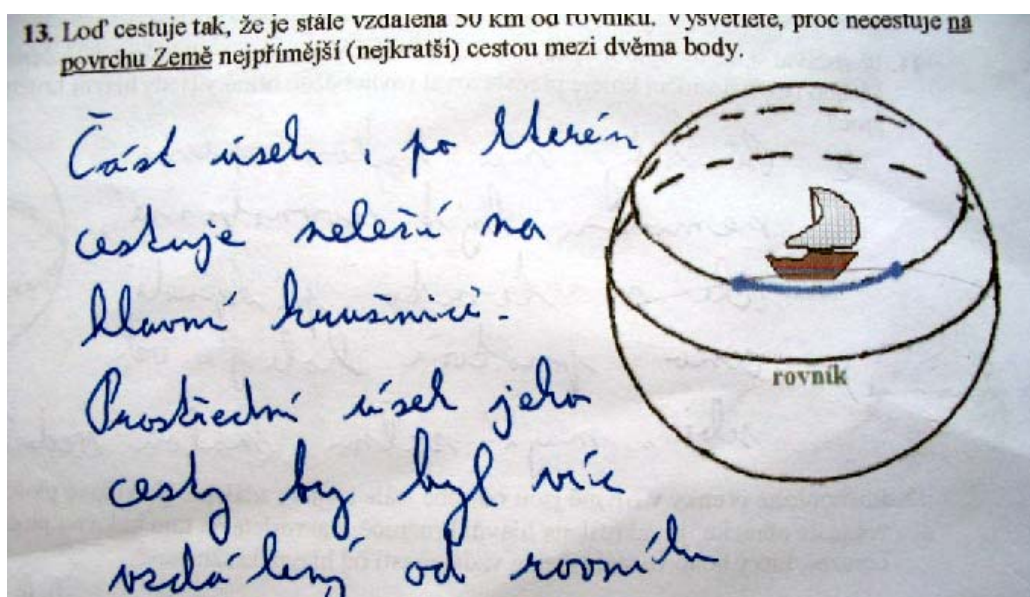 13. Loď cestuje tak, že je stále vzdálena 50 km od rovníku. Vysvětlete, proč necestuje na
povrchu Země nejpřímější (nejkratší) cestou mezi dvěma body.
Část úseku, po kterém
cestuje neleží na
hlavní kružnici.
rovník
Prostřední úsek jeho
cesty by byl víc
vzdálený od rovníku